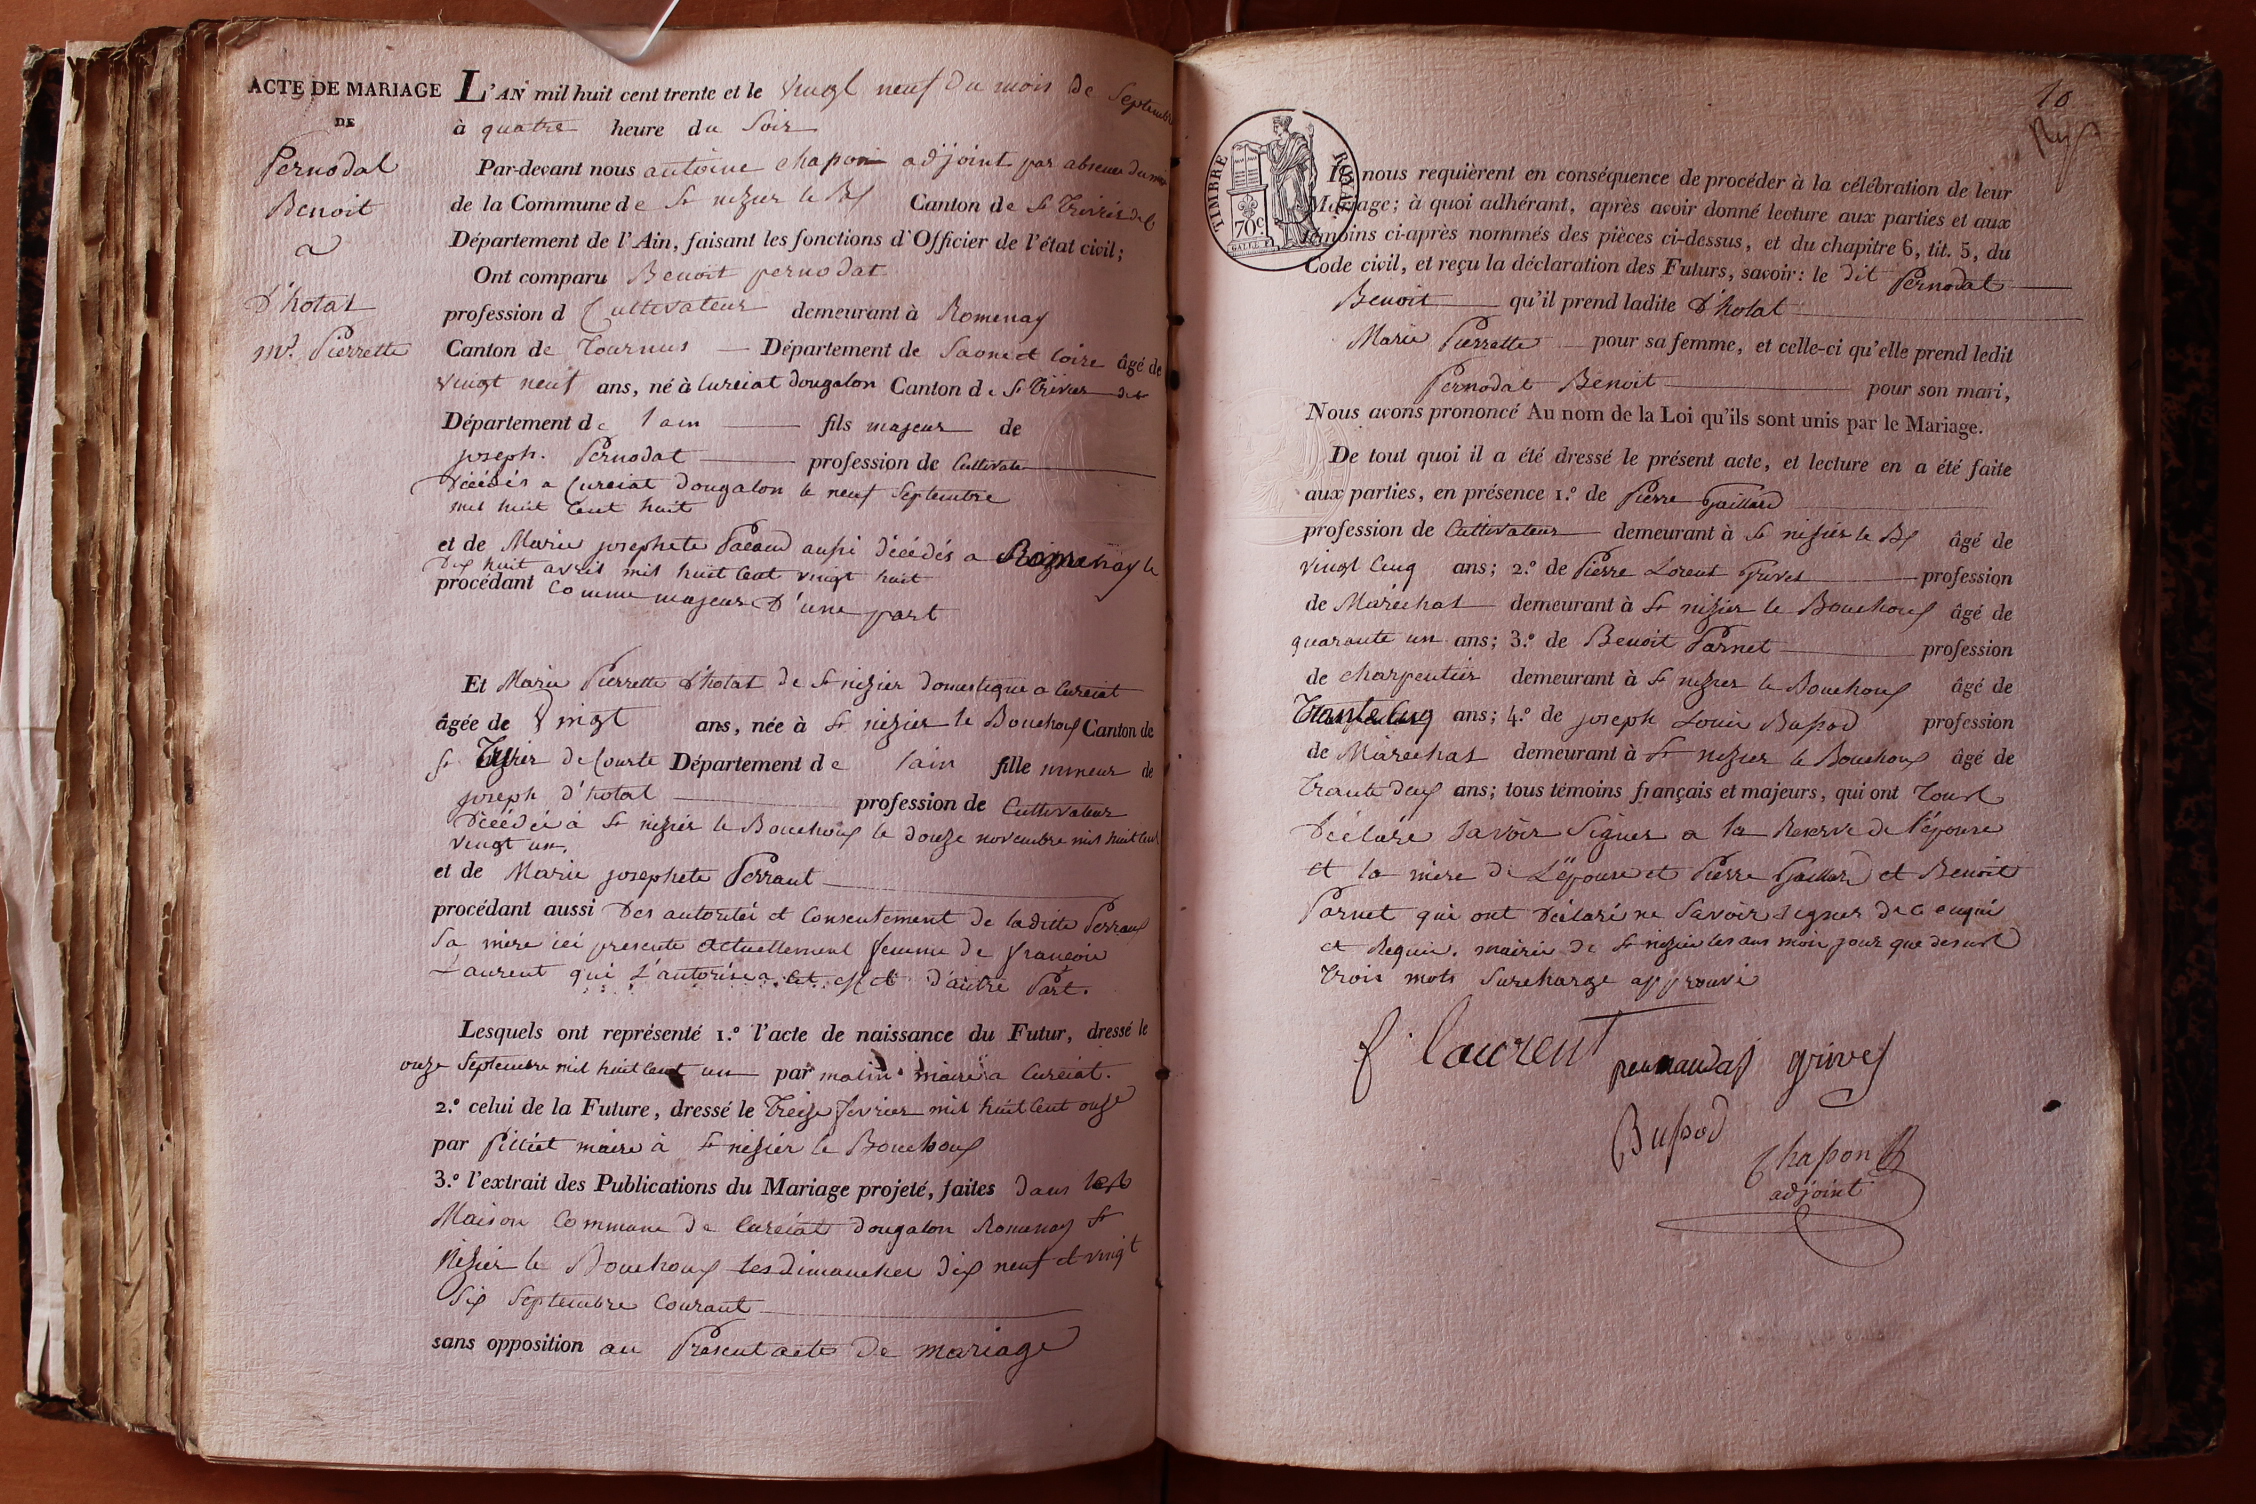 ACTE DE MARIAGE
DE
Pernodat
Benoit
a
D'hotat
Me. Pierrette
L'AN mil huit cent trente et le vingt neuf du mois de Septembre
à quatre heure du Soir
Par-devant nous antoine chapon adjoint par absence du maire
de la Commune de St nizier le Bx Canton de St Trivier de C
Département de l'Ain, faisant les fonctions d'Officier de l'état civil;
Ont comparu Benoit pernodat
profession d Cultivateur demeurant à Romenay
Canton de Tournus Département de Saone et loire âgé de
vingt neuf ans, né à Curciat dougalon Canton de St Trivier de
Département de l ain fils majeur de
joseph. Pernodat profession de Cultivate
décédés a Curciat Dongalon le neuf Septembre
mil huit Cent huit
et de Marie josephete Pacaud aussi décédés a Romenay le
Dix huit avril mil huit Cent vingt huit
procédant Comme majeur D'une part
Et Marie Pierrette D'hotat de St nizier domestique a Curciat
âgée de Vingt ans, née à St nizier le Bouchoux Canton de
St Trivier de Courte Département de lain fille mineur de
joseph d'hotat profession de Cultivateur
Décédé à St nizier le Bouchoux le douze novembre mil huit Cent
vingt un.
et de Marie josephete Perraut
procédant aussi Des autorité et Consentement de laditte Perraut
Sa mère ici presente actuellement femme de françois
Laurent qui L'autorise a cet effet d'autre Part.
Lesquels ont représenté 1.º l'acte de naissance du Futur, dressé le
onze Septembre mil huit Cent un par matin maire a Curciat.
2.º celui de la Future, dressé le Treize fevrier mil huit Cent onze
par Pilliet maire à St nizier le Bouchoux
3.º l'extrait des Publications du Mariage projeté, faites dans les
Maison Commune de Curciat dougalon Romenay St
Nizier le Bouchoux les dimanches dix neuf et vingt
Six Septembre Courant
sans opposition au Présent acte de mariage
10
TIMBRE ROYAL
70c
Ils nous requièrent en conséquence de procéder à la célébration de leur
Mariage; à quoi adhérant, après avoir donné lecture aux parties et aux
témoins ci-après nommés des pièces ci-dessus, et du chapitre 6, tit. 5, du
Code civil, et reçu la déclaration des Futurs, savoir: le dit Pernodat
Benoit qu'il prend ladite D'hotat
Marie Pierrette pour sa femme, et celle-ci qu'elle prend ledit
Pernodat Benoit pour son mari,
Nous avons prononcé Au nom de la Loi qu'ils sont unis par le Mariage.
De tout quoi il a été dressé le présent acte, et lecture en a été faite
aux parties, en présence 1.º de Pierre Gaillard
profession de Cultivateur demeurant à St nizier le Bx âgé de
vingt Cinq ans; 2.º de Pierre Lorent Grives profession
de Maréchat demeurant à St nizier le Bouchoux âgé de
quarante un ans; 3.º de Benoit Parnet profession
de charpentier demeurant à St nizier le Bouchoux âgé de
Trante Cinq ans; 4.º de joseph Louis Bussod profession
de Maréchat demeurant à St nizier le Bouchoux âgé de
Trante deux ans; tous témoins français et majeurs, qui ont Tous
Déclaré Savoir Signer a la Reserve de l'épouse
et la mère de L'épouse et Pierre Gaillard et Benoit
Parnet qui ont Déclaré ne Savoir signer de ce enquis
et Requis. mairie de St nizier les ans mois jour que dessus
Trois mots Surcharge approuvé
f. laurent
pernaudat
grives
Bussod
Chapon
adjoint